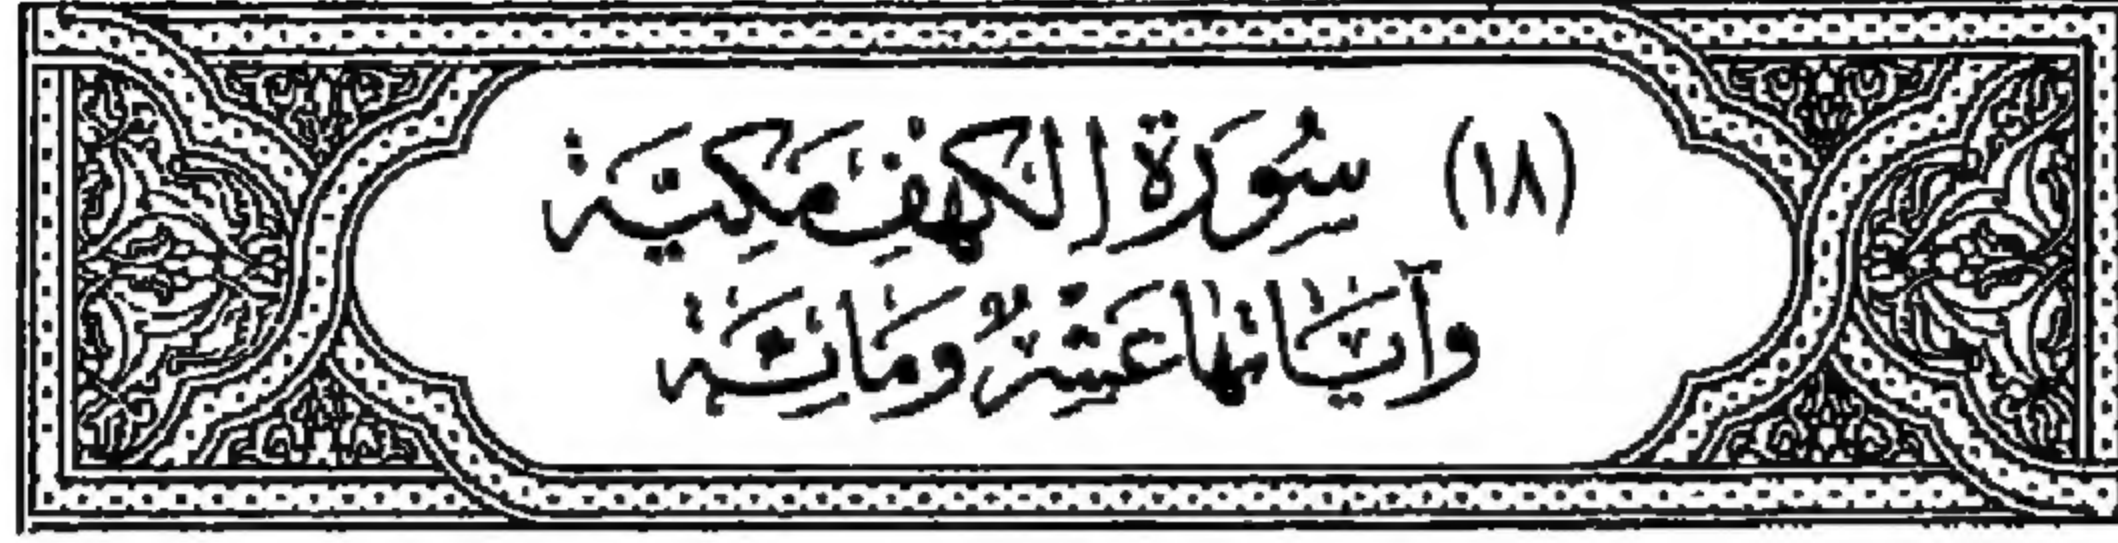 (١٨) سُورَة الكهفِ مَكِيَّة
وَآيَاتها عَشْرٌ ومَائِة